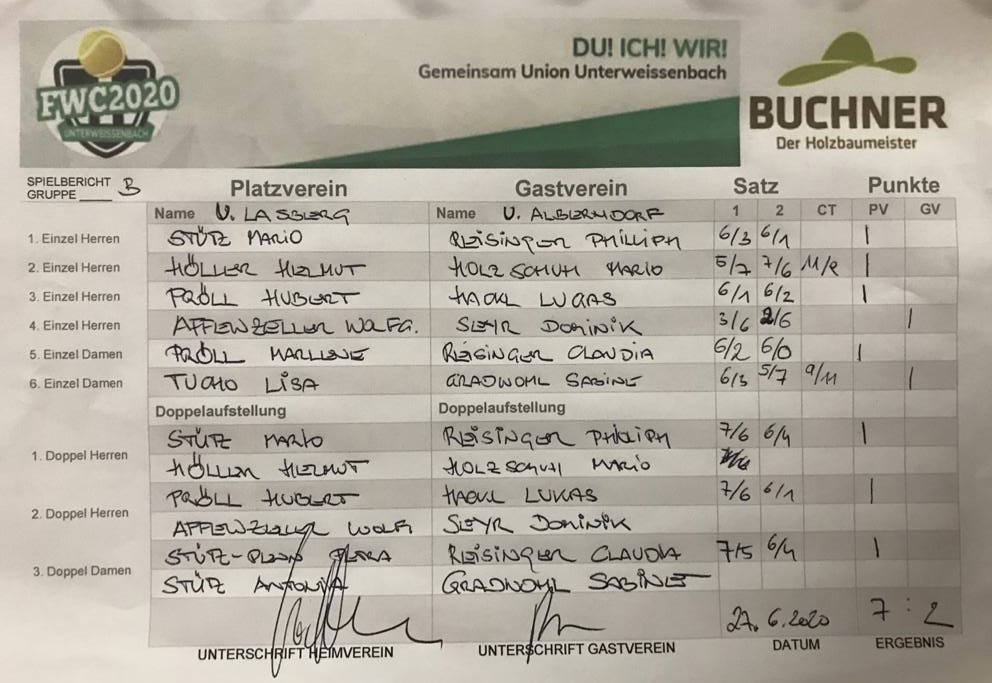 DU! ICH! WIR!
Gemeinsam Union Unterweissenbach
FWC2020
UNTERWEISSENBACH
BUCHNER
Der Holzbaumeister
SPIELBERICHT
GRUPPE B
Platzverein Gastverein Satz Punkte
Name U. LASBERG Name U. ALBERNDORF 1 2 CT PV GV
1. Einzel Herren STÜTZ MARIO REISINGER PHILLIPH 6/3 6/1 |
2. Einzel Herren HÖLLER HELMUT HOLZSCHUH MARIO 5/7 7/6 |
3. Einzel Herren PRÖLL HUBERT HACKL LUKAS 6/1 6/2 |
4. Einzel Herren WOLFG. SLEYR DOMINIK 3/6 2/6 |
5. Einzel Damen PRÖLL MARLENE REISINGER CLAUDIA 6/2 6/0 |
6. Einzel Damen TUCHO LISA GRADWOHL SABINE 6/3 5/7 9/11 |
Doppelaufstellung Doppelaufstellung
1. Doppel Herren
STÜTZ MARIO REISINGER PHILLIPH 7/6 6/4 |
HÖLLER HELMUT HOLZSCHUH MARIO
2. Doppel Herren
PRÖLL HUBERT HACKL LUKAS 7/6 6/1 |
WOLFG SLEYR DOMINIK
3. Doppel Damen
REISINGER CLAUDIA 7/5 6/4 |
STÜTZ ANTONIA GRADWOHL SABINE
27.6.2020 7 : 2
UNTERSCHRIFT HEIMVEREIN UNTERSCHRIFT GASTVEREIN DATUM ERGEBNIS